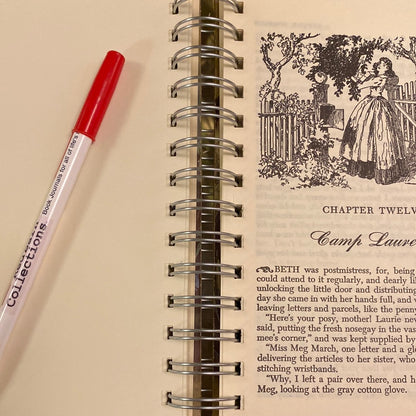 Collections
Book Journals for all of life's
CHAPTER TWELV
Camp Laure
BETH was postmistress, for, being
could attend to it regularly, and dearly li
unlocking the little door and distributing
day she came in with her hands full, and w
leaving letters and parcels, like the penny
"Here's your posy, mother! Laurie nev
said, putting the fresh nosegay in the vas
mee's corner," and was kept supplied by
"Miss Meg March, one letter and a gl
delivering the articles to her sister, who
stitching wristbands.
"Why, I left a pair over there, and h
Meg, looking at the gray cotton glove.